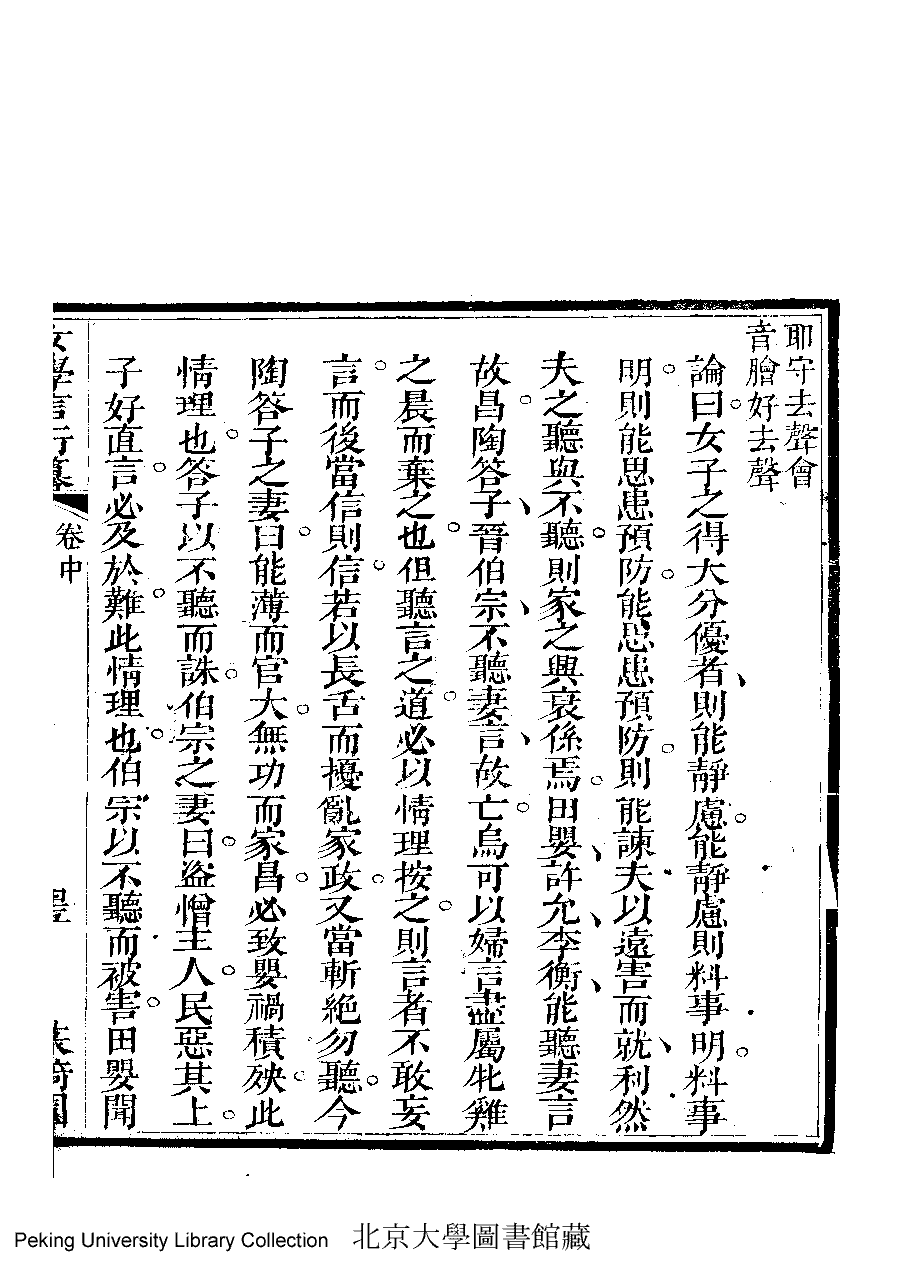 耶守去聲會
音膾好去聲
論曰女子之得大分優者則能靜慮能靜慮則料事明料事
明則能思患預防能思患預防則能諫夫以遠害而就利然
夫之聽與不聽則家之興衰係焉田嬰許允李衡能聽妻言
故昌陶答子晉伯宗不聽妻言故亡烏可以婦言盡屬牝雞
之晨而棄之也但聽言之道必以情理按之則言者不敢妄
言而後當信則信若以長舌而擾亂家政又當斬絕勿聽今
陶答子之妻曰能薄而官大無功而家昌必致嬰禍積殃此
情理也答子以不聽而誅伯宗之妻曰盜憎主人民惡其上
子好直言必及於難此情理也伯宗以不聽而被害田嬰聞
女學言行纂
卷中
Peking University Library Collection 北京大學圖書館藏